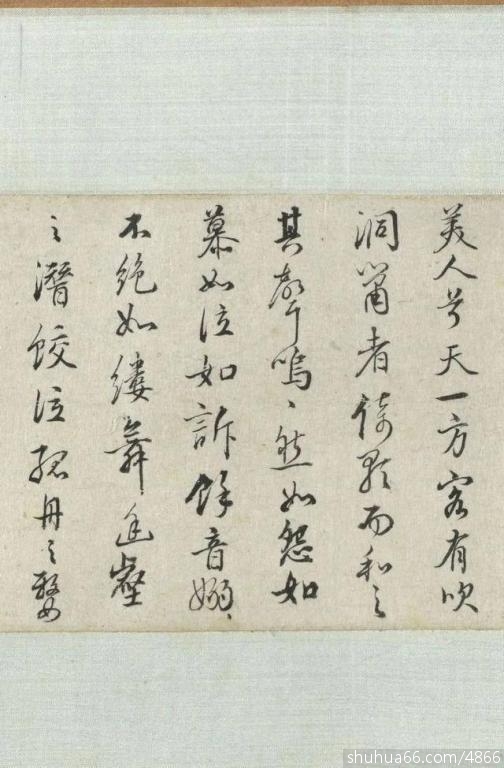 美人兮天一方客有吹
洞簫者倚歌而和之
其聲嗚〻然如怨如
慕如泣如訴餘音嫋〻
不絕如縷舞幽壑
之潛蛟泣孤舟之嫠
shuhua66.com/4866